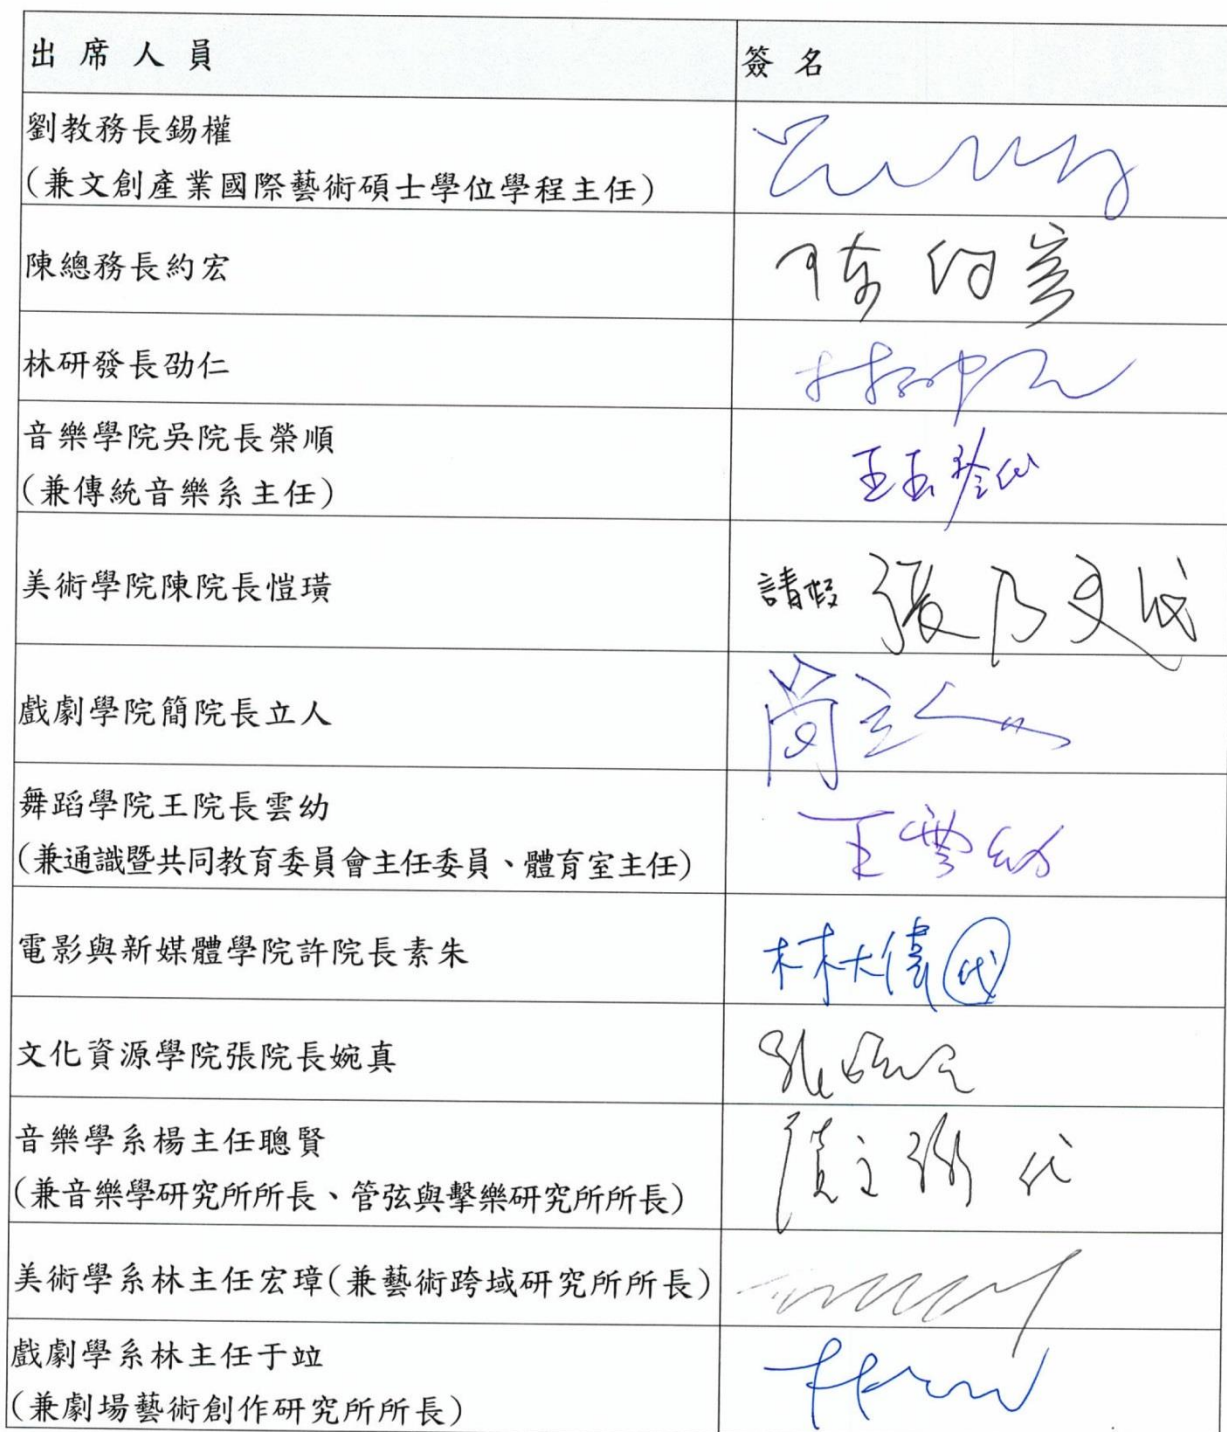 出席人員
簽名
劉教務長錫權
(兼文創產業國際藝術碩士學位學程主任)
陳總務長約宏
陳約宏
林研發長劭仁
音樂學院吳院長榮順
(兼傳統音樂系主任)
美術學院陳院長愷璜
請假
戲劇學院簡院長立人
簡立人
舞蹈學院王院長雲幼
王雲幼
(兼通識暨共同教育委員會主任委員、體育室主任)
電影與新媒體學院許院長素朱
林大偉代
文化資源學院張院長婉真
音樂學系楊主任聰賢
代
(兼音樂學研究所所長、管弦與擊樂研究所所長)
美術學系林主任宏璋(兼藝術跨域研究所所長)
戲劇學系林主任于竝
(兼劇場藝術創作研究所所長)